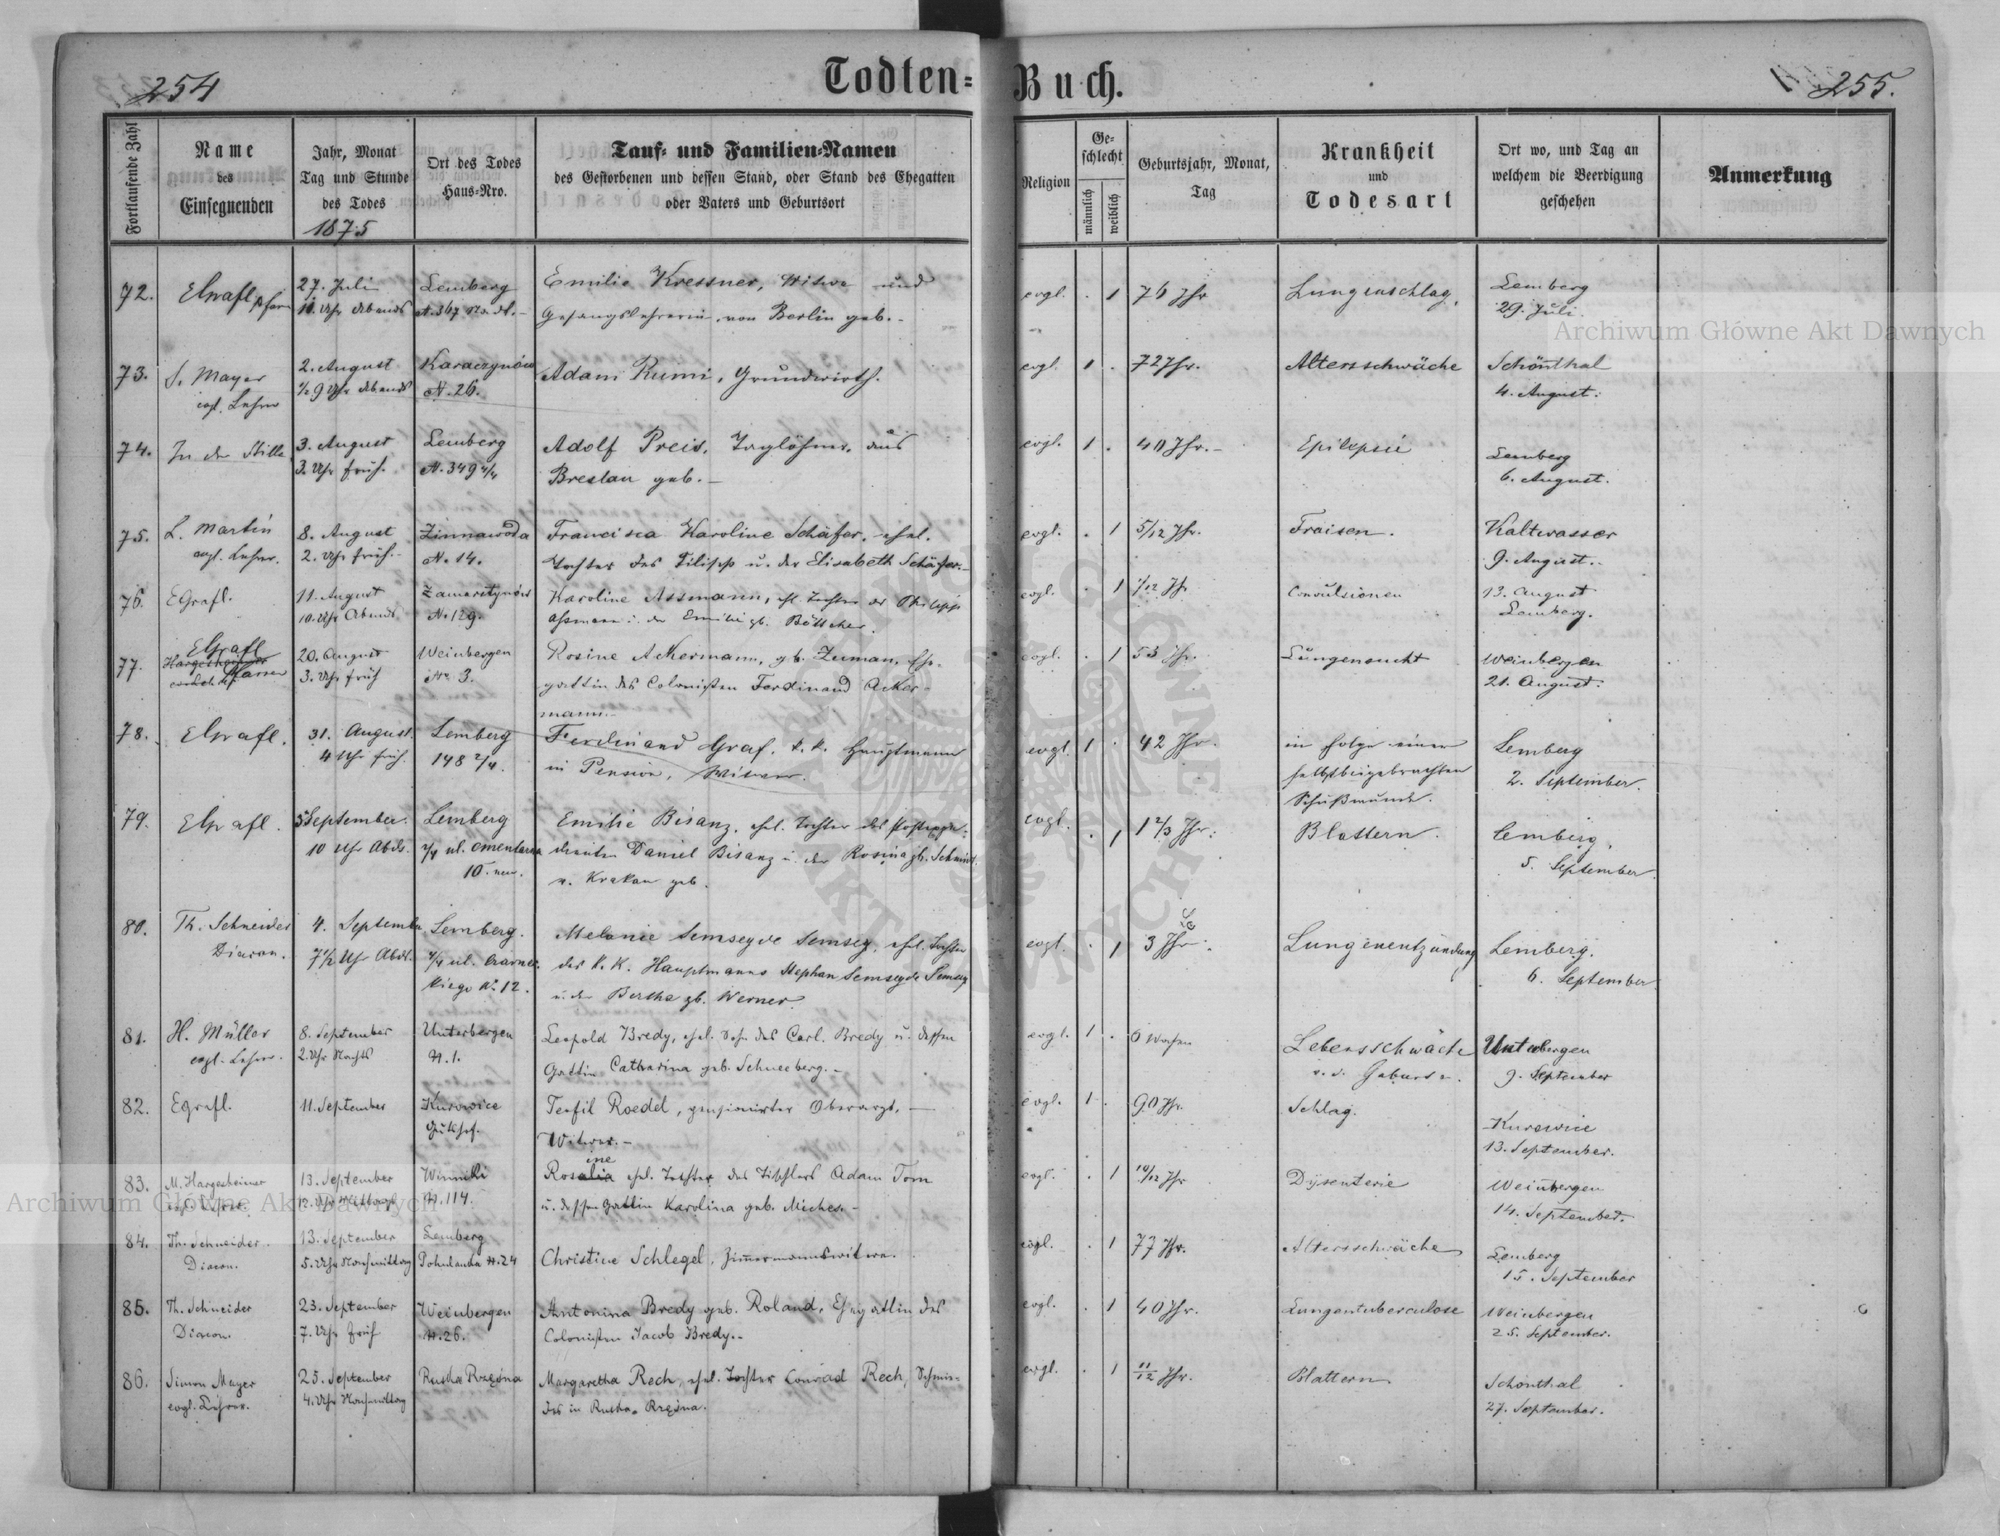 254
Todten-Buch.
255.
Fortlaufende Zahl
Name
des
Einsegnenden
Jahr, Monat
Tag und Stunde
des Todes
1875
Ort des Todes
Haus-Nro.
Tauf- und Familien-Namen
des Gestorbenen und dessen Stand, oder Stand des Ehegatten
oder Vaters und Geburtsort
Religion
Ge-
schlecht
männlich
weiblich
Geburtsjahr, Monat,
Tag
Krankheit
und
Todesart
Ort wo, und Tag an
welchem die Beerdigung
geschehen
Anmerkung
72.
27. Juli
Lemberg
Emilie Kressner, Witwe und
Gesangslehrerin, von Berlin geb.-
evgl. . 1 76 Jhr
Lungenschlag.
Lemberg
29. Juli.
73.
S. Mayer
evgl. Lehrer
2. August
½ 9 Uhr Abends
Karaczynów
N. 26.
Adam Rumi, Grundwirth.
evgl. 1 . 72 Jhr.
Altersschwäche
Schönthal
4. August.
74.
In der Stille
3. August
3. Uhr früh.
Lemberg
N. 349 4/4
Adolf Preis, Taglöhner, aus
Breslau geb.-
evgl. 1 . 40 Jhr.-
Epilepsie
Lemberg
6. August.
75.
L. Martin
evgl. Lehrer.
8. August
2. Uhr früh.-
Zimnawoda
N. 14.
Francisca Karoline Schäfer, ehel.
Tochter des Filipp u. der Elisabeth Schäfer.-
evgl. . 1 5/12 Jhr.
Fraisen.
Kaltwasser
9. August.
76.
EGrafl.
11. August
10. Uhr Abends
Zamarstynów
N. 129.
Karoline Assmann, ehl. Tochter des Philipp
Assmann u. der Emilie gb. Böttcher.
evgl. . 1 1/12 Jhr
Convulsionen
13. August
Lemberg.
77.
EGrafl
Pfarrer
20. August
3. Uhr früh
Weinbergen
Nr. 3.
Rosine Ackermann, gb. Zuman, Ehe-
gattin des Colonisten Ferdinand Acker-
mann.-
evgl. . 1 53 Jhr.
Lungensucht
Weinbergen
21. August.
78.
EGrafl.
31. August.
4 Uhr früh.
Lemberg
148 2/4.
Ferdinand Graf, k. k. Hauptmann
in Pension, Witwer.
evgl. 1 . 42 Jhr.
in Folge einer
selbstbeigebrachten
Schußwunde.
Lemberg
2. September.
79.
EGrafl.
September.
10 Uhr Abds.
Lemberg
10. neu.
Emilie Bisanz, ehel. Tochter des
Daniel Bisanz u. der Rosina gb. Schmidt
v. Krakau geb.
evgl. . 1 1 2/3 Jhr.
Blattern.
Lemberg,
5. September.
80.
Th. Schneider
Diacon.
4. September
7½ Uhr Abds.
Lemberg.
Melanie Semsey de Semsey, ehel. Tochter
des k. k. Hauptmanns Stephan Semsey de Semsey
u. der Bertha gb. Werner.
evgl. . 1 3 Jhr.
Lungenentzündung
Lemberg.
6. September.
81.
H. Müller
evgl. Lehrer.
8. September
2. Uhr Nachts
Unterbergen
N. 1.
Leopold Bredy, ehel. Sohn des Carl Bredy u. dessen
Gattin Catharina geb. Schneeberg.-
evgl. 1 . 6 Wochen
Lebensschwäche
v. d. Geburt.
Unterbergen
9. September
82.
EGrafl.
11. September
Kurowice
Gutshof.
Teofil Roedel, pensionirter Oberarzt,-
Witwer.-
evgl. 1 . 90 Jhr.
Schlag.
Kurowice
13. September.
83.
M. Hargesheimer
evgl. Lehrer.
13. September
Winniki
N. 114.
Rosaline ehel. Tochter des Tischlers Adam Tom
u. dessen Gattin Karolina geb. Miches.-
evgl. . 1 10/12 Jhr
Dysenterie
Weinbergen
14. September.
84.
Th. Schneider
Diacon.
13. September
5. Uhr Nachmittag
Lemberg
Pohulanka N. 24
Christine Schlegel, Zimmermannswitwe.
evgl. . 1 77 Jhr.
Altersschwäche
Lemberg
15. September
85.
Th. Schneider
Diacon.
23. September
7. Uhr früh
Weinbergen
N. 26.
Antonina Bredy geb. Roland, Ehegattin des
Colonisten Jacob Bredy.-
evgl. . 1 40 Jhr.
Lungentuberculose
Weinbergen
25. September.
86.
Simon Mayer
evgl. Lehrer.
25. September
4. Uhr Nachmittag
Ruska Rzęsna
Margaretha Rech, ehel. Tochter Conrad Rech, Schmie-
des in Ruska Rzęsna.
evgl. . 1 11/12 Jhr.
Blattern
Schönthal
27. September.
Archiwum Główne Akt Dawnych
Archiwum Główne Akt Dawnych